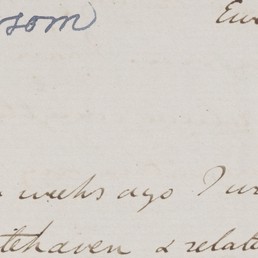 som
weeks ago I w
tehaven & relate